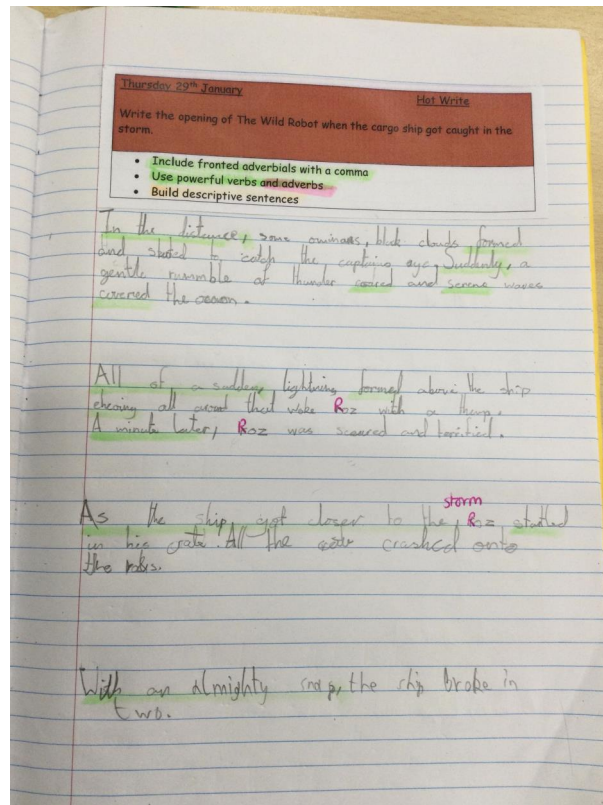 Thursday 29th January
Hot Write
Write the opening of The Wild Robot when the cargo ship got caught in the
storm.
• Include fronted adverbials with a comma
• Use powerful verbs and adverbs
• Build descriptive sentences
In the distance, some ominous, clouds formed
and to catch the captains eye, Suddenly, a
gentle rumble of thunder and serene waves
covered the
All of a sudden, lightning formed above the ship
all that woke Roz with a
A minute later, Roz was and terrified.
storm
As the ship got closer to the, Roz started
in his crate. All the crashed onto
the
With an almighty the ship broke in
two.